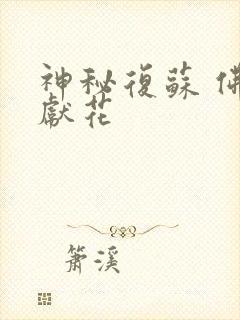 神秘復蘇 佛
獻花
簫溪